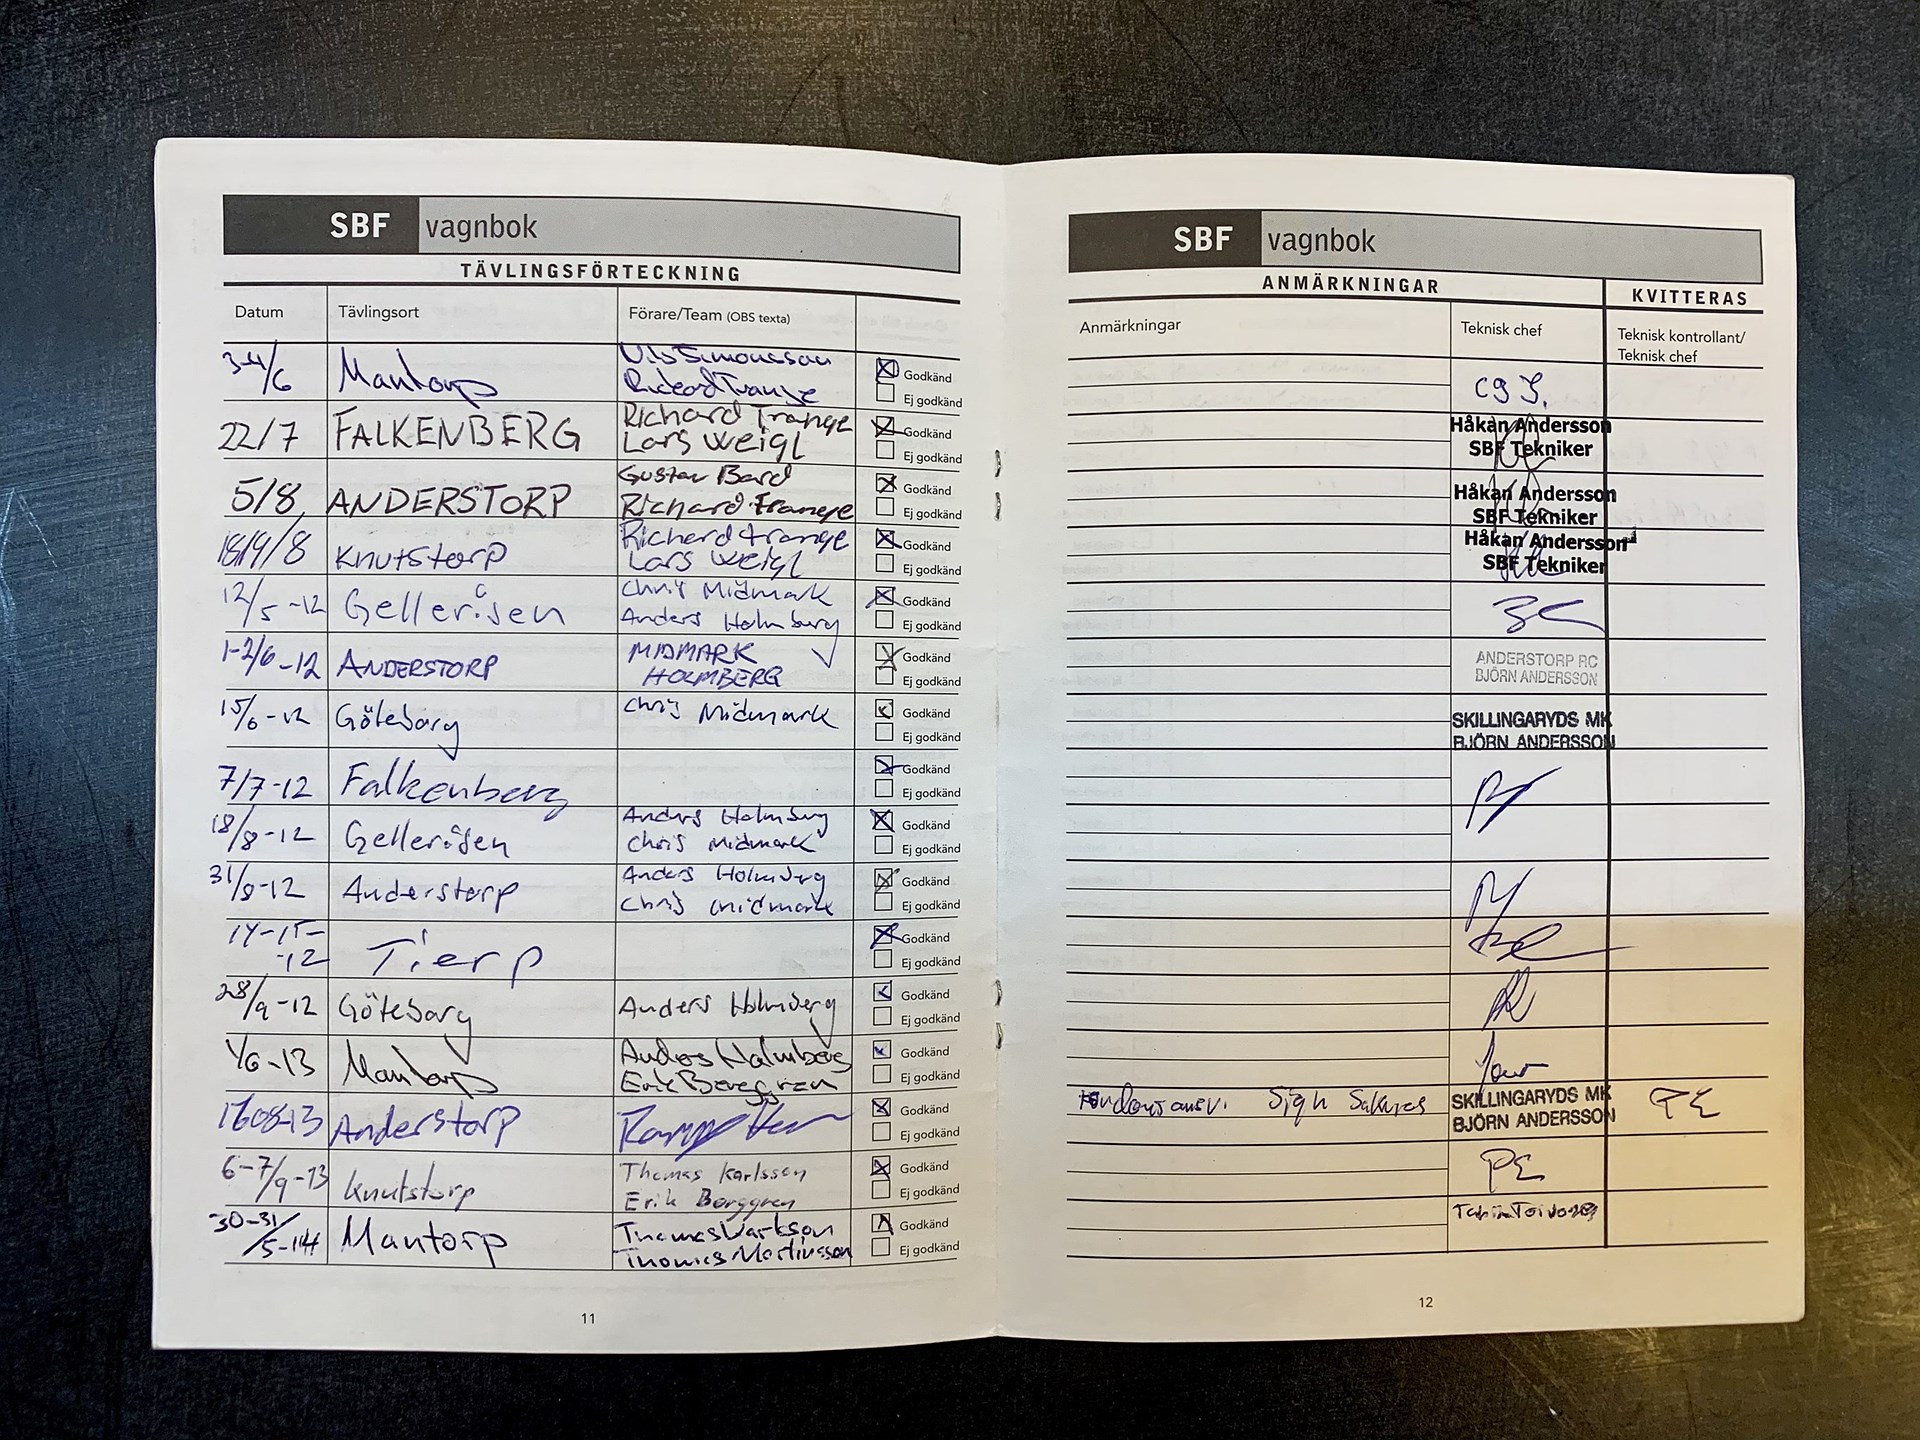 SBF vagnbok
TÄVLINGSFÖRTECKNING
Datum Tävlingsort Förare/Team (OBS texta)
3-4/6 Mantorp Simonsson
Godkänd
Ej godkänd
22/7 FALKENBERG Richard Trange
Lars Weigl
Godkänd
Ej godkänd
5/8 ANDERSTORP Gustav Bard
Richard Trange
Godkänd
Ej godkänd
18/19/8 Knutstorp Richard Trange
Lars Weigl
Godkänd
Ej godkänd
12/5-12 Gelleråsen Chris Midmark
Anders Holmberg
Godkänd
Ej godkänd
1-2/6-12 ANDERSTORP MIDMARK
HOLMBERG
Godkänd
Ej godkänd
15/6-12 Göteborg Chris Midmark
Godkänd
Ej godkänd
7/7-12 Falkenberg
Godkänd
Ej godkänd
18/8-12 Gelleråsen Anders Holmberg
Chris Midmark
Godkänd
Ej godkänd
31/8-12 Anderstorp Anders Holmberg
Chris Midmark
Godkänd
Ej godkänd
14-15-
-12 Tierp
Godkänd
Ej godkänd
28/9-12 Göteborg Anders Holmberg
Godkänd
Ej godkänd
1/6-13 Mantorp Anders Holmberg
Erik Berggren
Godkänd
Ej godkänd
Anderstorp
Godkänd
Ej godkänd
6-7/9-13 Knutstorp Thomas Karlsson
Erik Berggren
Godkänd
Ej godkänd
30-31/5-14 Mantorp Thomas Karlsson
Thomas Martinsson
Godkänd
Ej godkänd
11
SBF vagnbok
ANMÄRKNINGAR KVITTERAS
Anmärkningar Teknisk chef Teknisk kontrollant/
Teknisk chef
Håkan Andersson
SBF Tekniker
Håkan Andersson
SBF Tekniker
Håkan Andersson
SBF Tekniker
ANDERSTORP RC
BJÖRN ANDERSSON
SKILLINGARYDS MK
BJÖRN ANDERSSON
SKILLINGARYDS MK
BJÖRN ANDERSSON
PE
PE
12